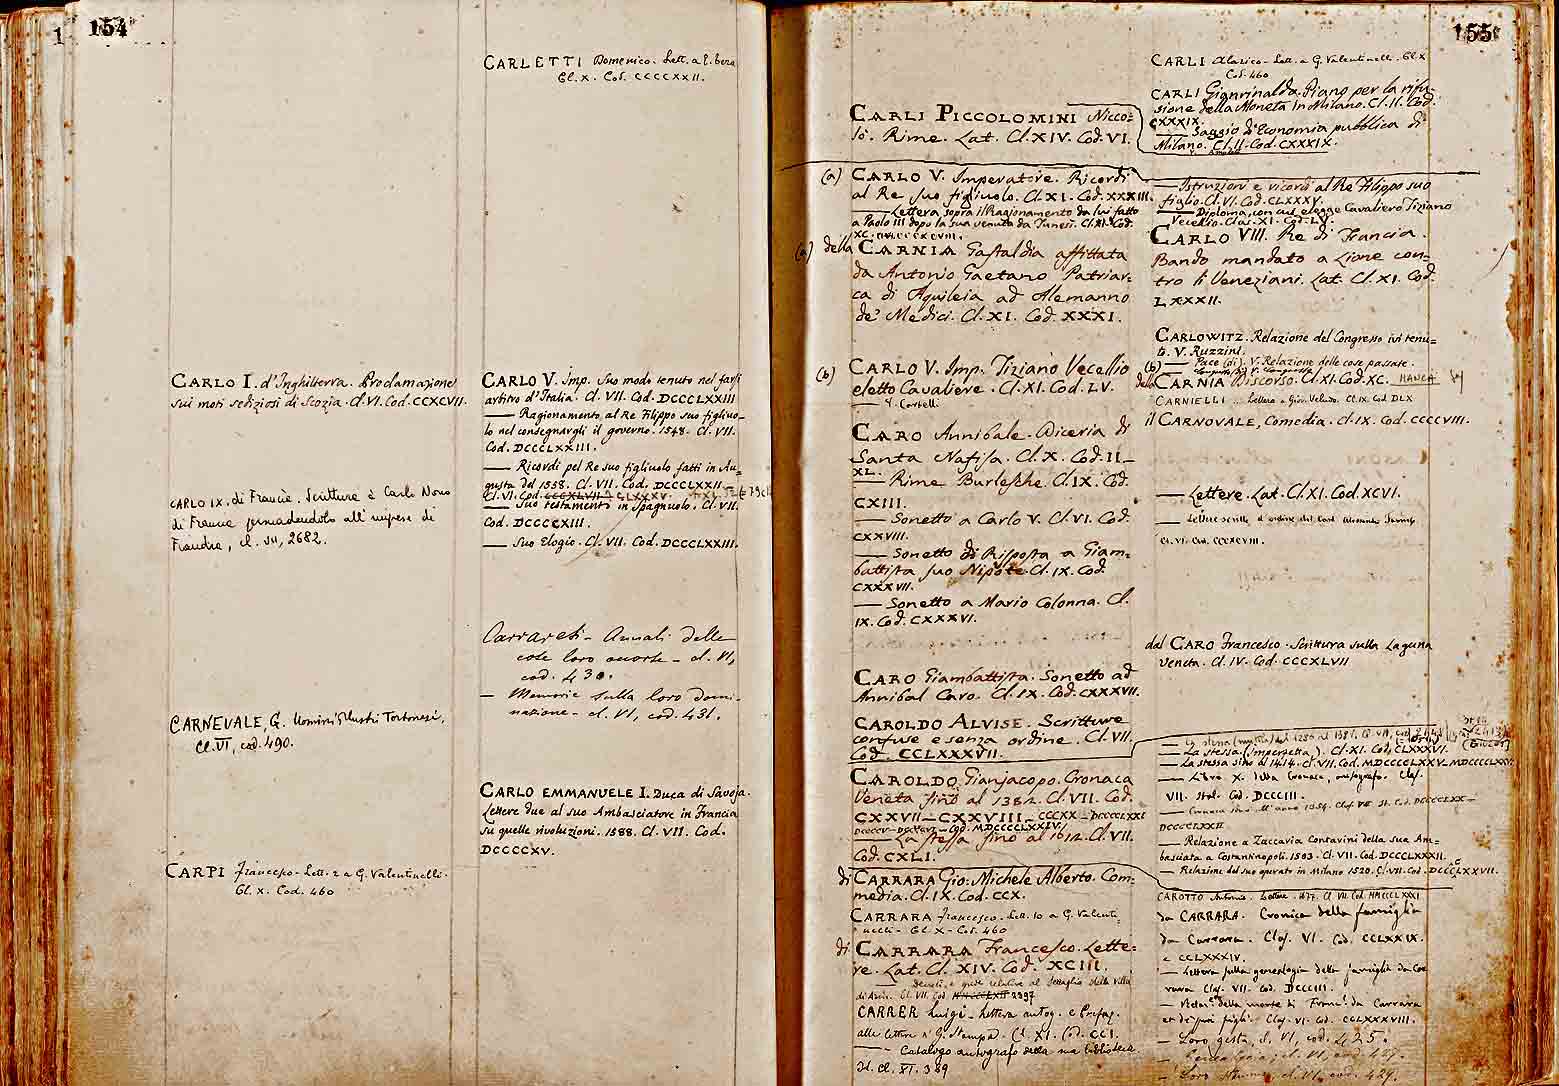 154
CARLETTI Domenico. Lett. a E.
Cl. X. Cod. CCCCXXII.
CARLO I. d'Inghilterra. Proclamazione
sui moti sediziosi di Scozia. Cl. VI. Cod. CCXCVII.
CARLO IX. di Francia. Scritture a Carlo Nono
di Francia persuadendolo all'impresa di
Fiandra, cl. VII, 2682.
CARNEVALE, G. Uomini Illustri Tortonesi,
Cl. VI, cod. 490.
CARPI Francesco. Lett. 2 a G. Valentinelli.
Cl. X. Cod. 460
CARLO V. Imp. Suo modo tenuto nel farsi
arbitro d'Italia. Cl. VII. Cod. DCCCLXXIII
— Ragionamento al Re Filippo suo figliuo-
lo nel consegnargli il governo. 1548. Cl. VII.
Cod. DCCCLXXIII.
— Ricordi pel Re suo figliuolo fatti in Au-
gusta del 1558. Cl. VII. Cod. DCCCLXXII —
Cl. VI. Cod. CCCXLVII CLXXXV.
— Suo testamento in Spagnuolo. Cl. VII.
Cod. DCCCCXIII.
— Suo Elogio. Cl. VII. Cod. DCCCLXXIII.
Carraresi - Annali delle
cose loro occorse - cl. VI,
cod. 430.
— Memorie sulla loro domi-
nazione - cl. VI, cod. 431.
CARLO EMMANUELE I. Duca di Savoja.
Lettere due al suo Ambasciatore in Francia
su quelle rivoluzioni. 1588. Cl. VII. Cod.
DCCCCXV.
155
CARLI PICCOLOMINI Nicco-
lò. Rime. Lat. Cl. XIV. Cod. VI.
(a) CARLO V. Imperatore. Ricordi
al Re suo figliuolo. Cl. XI. Cod. XXXIII.
— Lettera sopra il Ragionamento da lui fatto
a Paolo III dopo la sua venuta da Tunesi. Cl. XI. Cod.
XC.
(a) della CARNIA Gastaldia affittata
da Antonio Gaetano Patriar-
ca di Aquileia ad Alemanno
de' Medici. Cl. XI. Cod. XXXI.
(b) CARLO V. Imp. Tiziano Vecellio
eletto Cavaliere. Cl. XI. Cod. LV.
CARO Annibale. Diceria di
Santa Nafissa. Cl. X. Cod. II —
XL.
— Rime Burlesche. Cl. IX. Cod.
CXIII.
— Sonetto a Carlo V. Cl. VI. Cod.
CXXVIII.
— Sonetto di Risposta a Giam-
battista suo Nipote. Cl. IX. Cod.
CXXXVII.
— Sonetto a Mario Colonna. Cl.
IX. Cod. CXXXVI.
CARO Giambattista. Sonetto ad
Annibal Caro. Cl. IX. Cod. CXXXVII.
CAROLDO ALVISE. Scritture
confuse e senza ordine. Cl. VII.
Cod. CCLXXXVII.
CAROLDO Gianjacopo. Cronaca
Veneta fino al 1382. Cl. VII. Cod.
CXXVII — CXXVIII —
— La stessa fino al 1612. Cl. VII.
Cod. CXLI.
di CARRARA Gio: Michele Alberto. Com-
media. Cl. IX. Cod. CCX.
CARRARA Francesco. Lett. 10 a G. Valenti-
nelli. Cl. X. Cod. 460
di CARRARA Francesco. Lette-
re. Lat. Cl. XIV. Cod. XCIII.
CARRER Luigi - Lettera autog. e Prefaz.
alle lettere di G. Stampa. Cl. XI. Cod. CCI.
— Catalogo autografo della sua biblioteca
It. Cl. XI. 389
CARLI Alarico. Lett. a G. Valentinelli. Cl. X
Cod. 460
CARLI Gianrinaldo. Piano per la rifu-
sione della Moneta in Milano. Cl. II. Cod.
CXXXIX.
— Saggio d'Economia pubblica di
Milano. Cl. II. Cod. CXXXIX.
— Istruzioni e ricordi al Re Filippo suo
figlio. Cl. VI. Cod. CLXXXV.
— Diploma, con cui elegge Cavaliero Tiziano
Vecellio. Clas. XI. Cod. LV.
CARLO VIII. Re di Francia.
Bando mandato a Lione con-
tro li Veneziani. Lat. Cl. XI. Cod.
LXXXII.
CARLOWITZ. Relazione del Congresso ivi tenu-
to. V. Ruzzini.
— Pace (di). V. Relazione delle cose passate.
(b) della CARNIA Discorso. Cl. XI. Cod. XC. MANCA
CARNIELLI Lettera a Giov. Veludo. Cl. IX Cod DLX
il CARNOVALE, Comedia. Cl. IX. Cod. CCCCVIII.
— Lettere. Lat. Cl. XI. Cod. XCVI.
— Lettere scritte d'ordine del Card.
Cl. VI. Cod. CCCXCVIII.
dal CARO Francesco. Scrittura sulla Laguna
Veneta. Cl. IV. Cod. CCCXLVII
— La stessa (Imperfetta). Cl. XI. Cod. CLXXXVI.
— La stessa sino al 1414. Cl. VII. Cod.
— Libro X. della Cronaca, autografo. Clas.
VII. Ital. Cod. DCCCIII.
— Relazione a Zaccaria Contarini della sua Am-
basciata a Costantinopoli. 1503. Cl. VII. Cod. DCCCLXXXII.
— Relazione del suo operato in Milano 1520. Cl. VII. Cod. DCCCLXXVII.
CAROTTO Antonio. Lettere.
da CARRARA. Cronica della famiglia
da Carrara. Clas. VI. Cod. CCLXXIX.
e CCLXXXIV.
— Lettera sulla genealogia della famiglia da Car-
rara Clas. VII. Cod. DCCCIII.
— Relaz.e della morte di Franc.o da Carrara
et de' suoi figli. Clas. VI. Cod. CCLXXXVIII.
— Loro gesta, cl. VI, cod. 425.
— Genealogia, cl. VI, cod. 427.